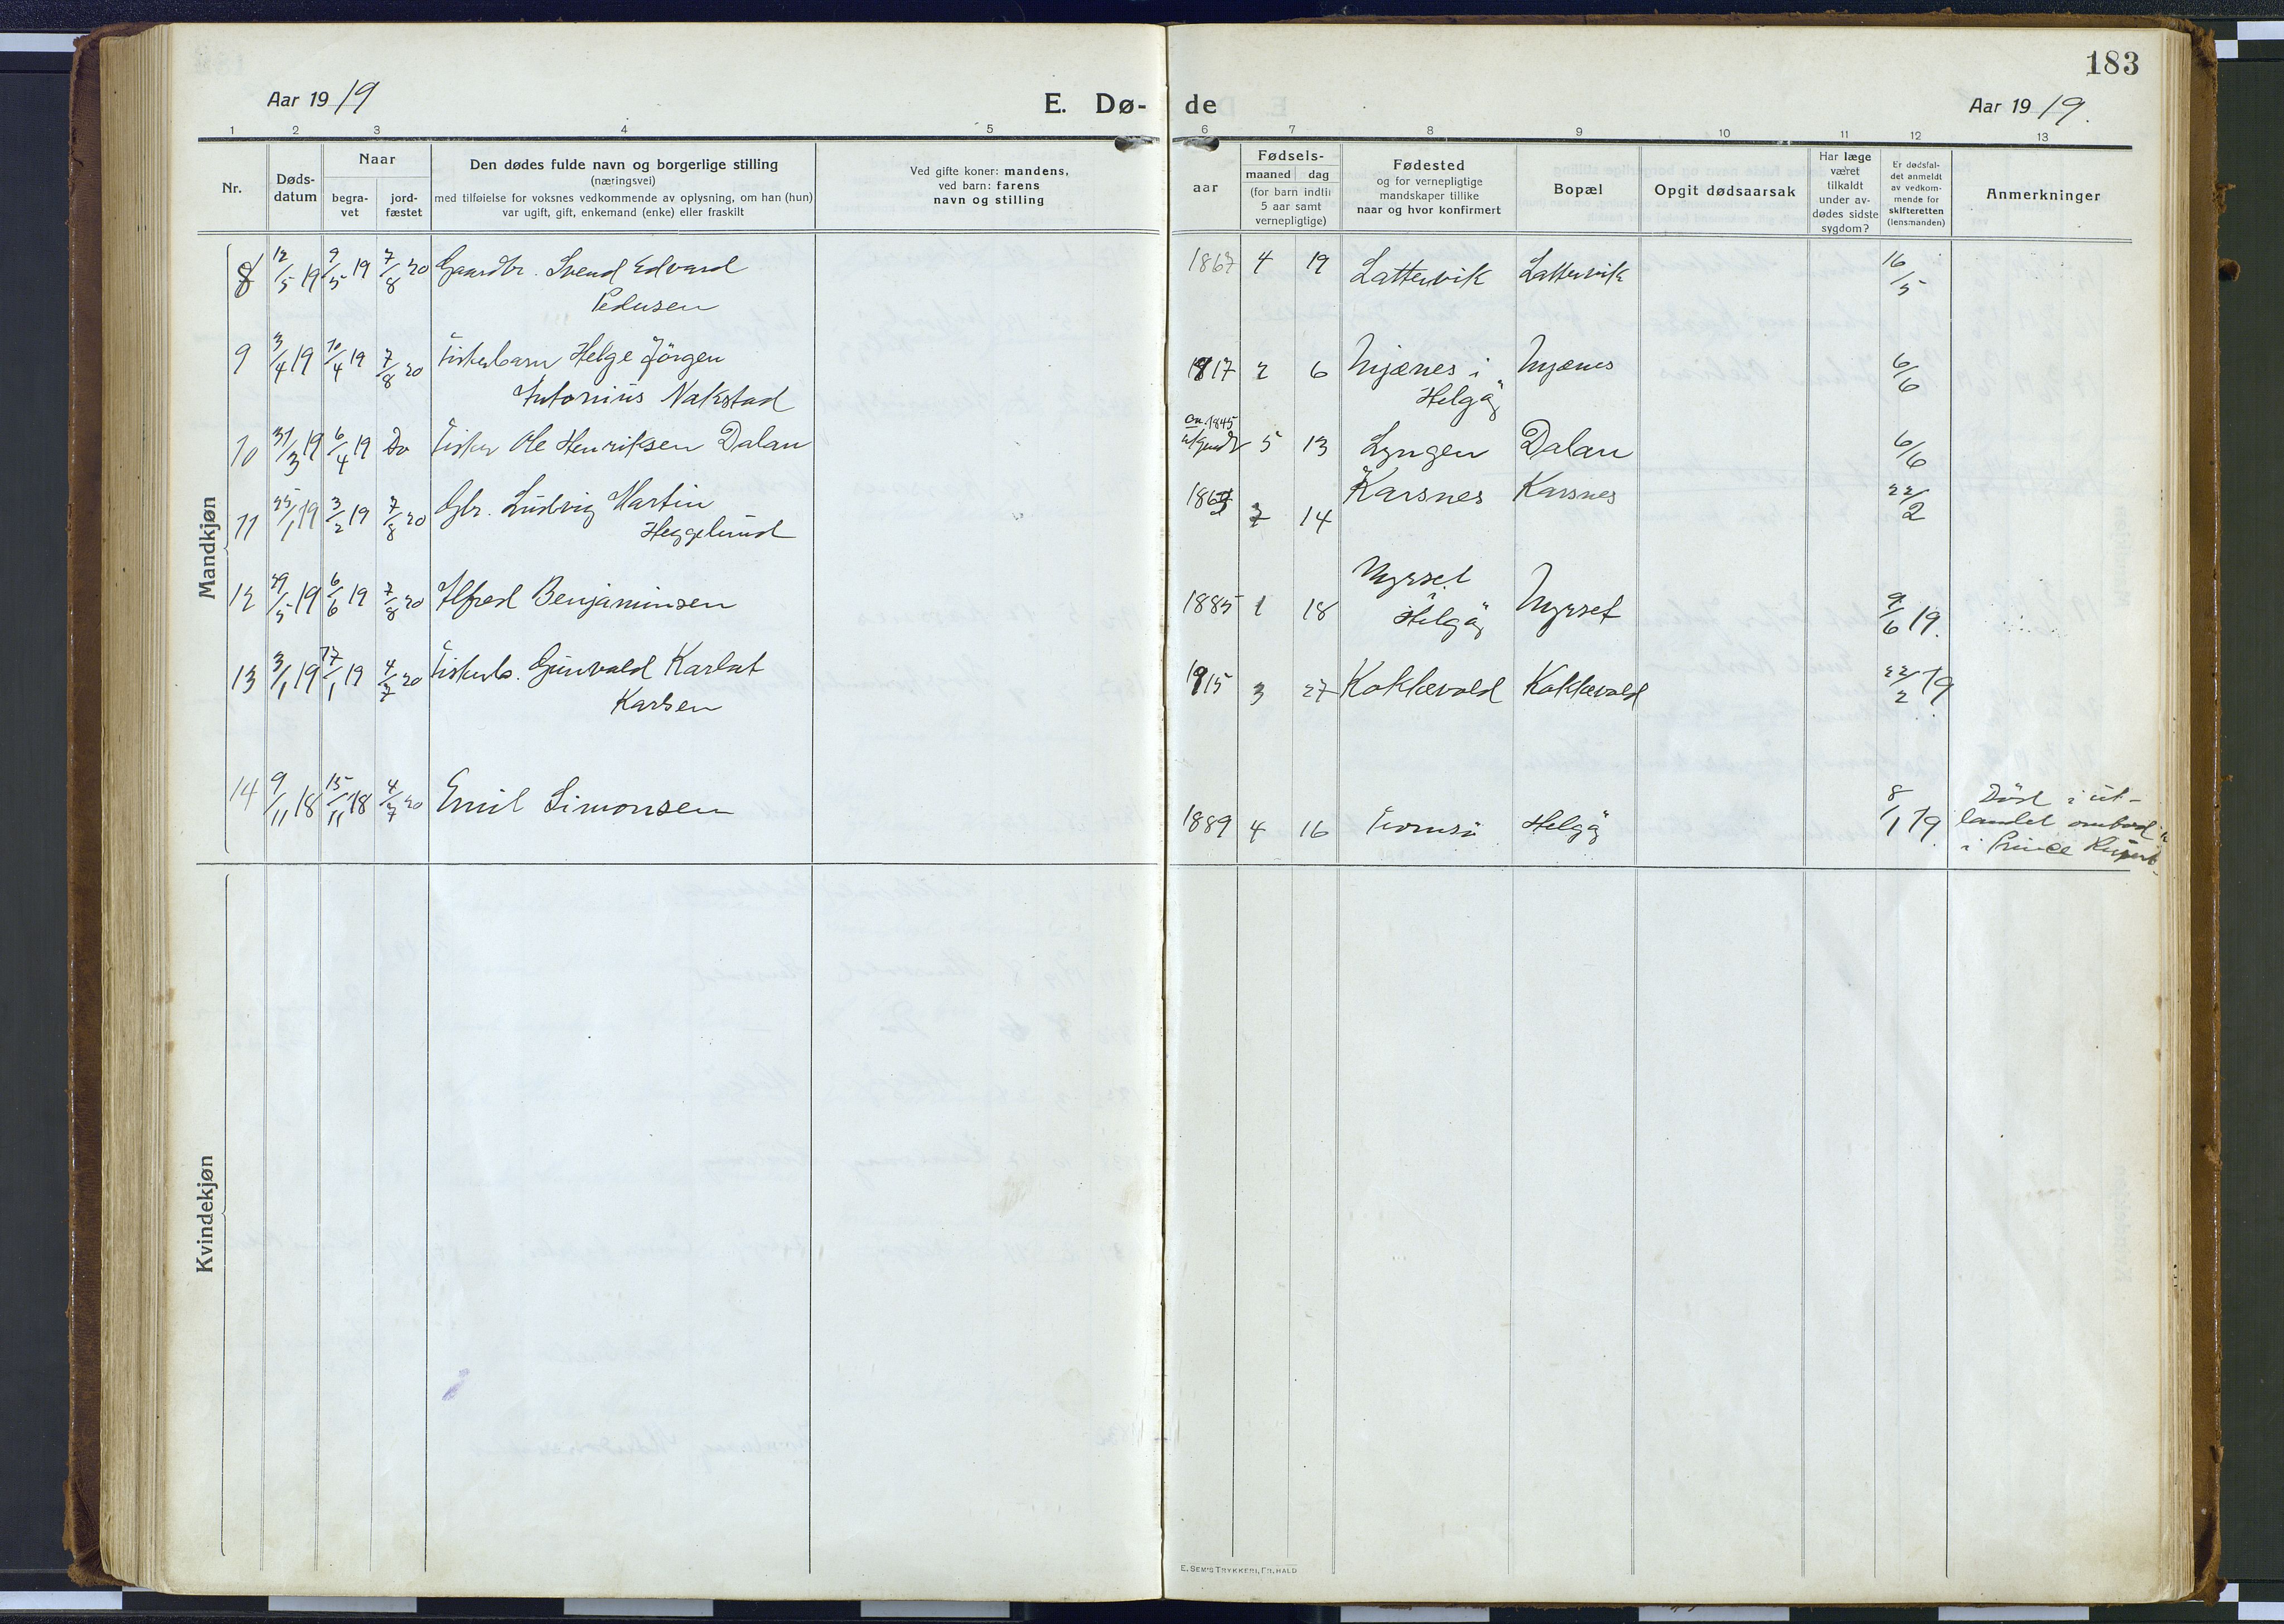 183
Aar 19 19
E. Dø- de
Aar 19 19.
1 2 3 4 5 6 7 8 9 10 11 12 13
Nr.
Døds-
datum
Naar
begra-
vet
jord-
fæstet
Den dødes fulde navn og borgerlige stilling
(næringsvei)
med tilføielse for voksnes vedkommende av oplysning, om han (hun)
var ugift, gift, enkemand (enke) eller fraskilt
Ved gifte koner: mandens,
ved barn: farens
navn og stilling
aar
Fødsels-
maaned dag
(for barn indtil
5 aar samt
vernepligtige)
Fødested
og for vernepligtige
mandskaper tillike
naar og hvor konfirmert
Bopæl
Opgit dødsaarsak
Har læge
været
tilkaldt
under av-
dødes sidste
sygdom?
Er dødsfal-
det anmeldt
av vedkom-
mende for
skifteretten
(lensmanden)
Anmerkninger
Mandkjøn
8 12/5 19 9/5 19 7/8 20 Gaardbr. Svend Edvard 1867 4 19 Lattervik Lattervik 16/5
Pedersen
9 3/4 19 10/4 19 7/8 20 Fiskerbarn Helge Jörgen 1917 2 6 Mjænes i Mjænes 6/6
Antonius Nakstad Helgöy
ca. 1845
10 31/3 19 6/4 19 Do Fisker Ole Henriksen Dalan 5 13 Lyngen Dalan 6/6
11 25/1 19 3/2 19 7/8 20 Gbr. Ludvig Martin 7 14 Karsnes Karsnes 22/2
Heggelund
12 29/5 19 6/6 19 7/8 20 Alfred Benjaminsen 1885 1 18 Nyrset i Helgöy Nyrset 9/6 19.
13 3/1 19 17/1 19 4/7 20 Fiskerb. Gunvald Karlot 1915 3 27 Koklævold Koklævold 22/2 19.
Karlsen
14 9/11 18 15/11 18 4/7 20 Emil Simonsen 1889 4 16 Tromsö Helgöy 8/1 19. Död i ut-
landet ombord
i Prince Rupert
Kvindekjøn
E. SEM'S TRYKKERI, FR.HALD